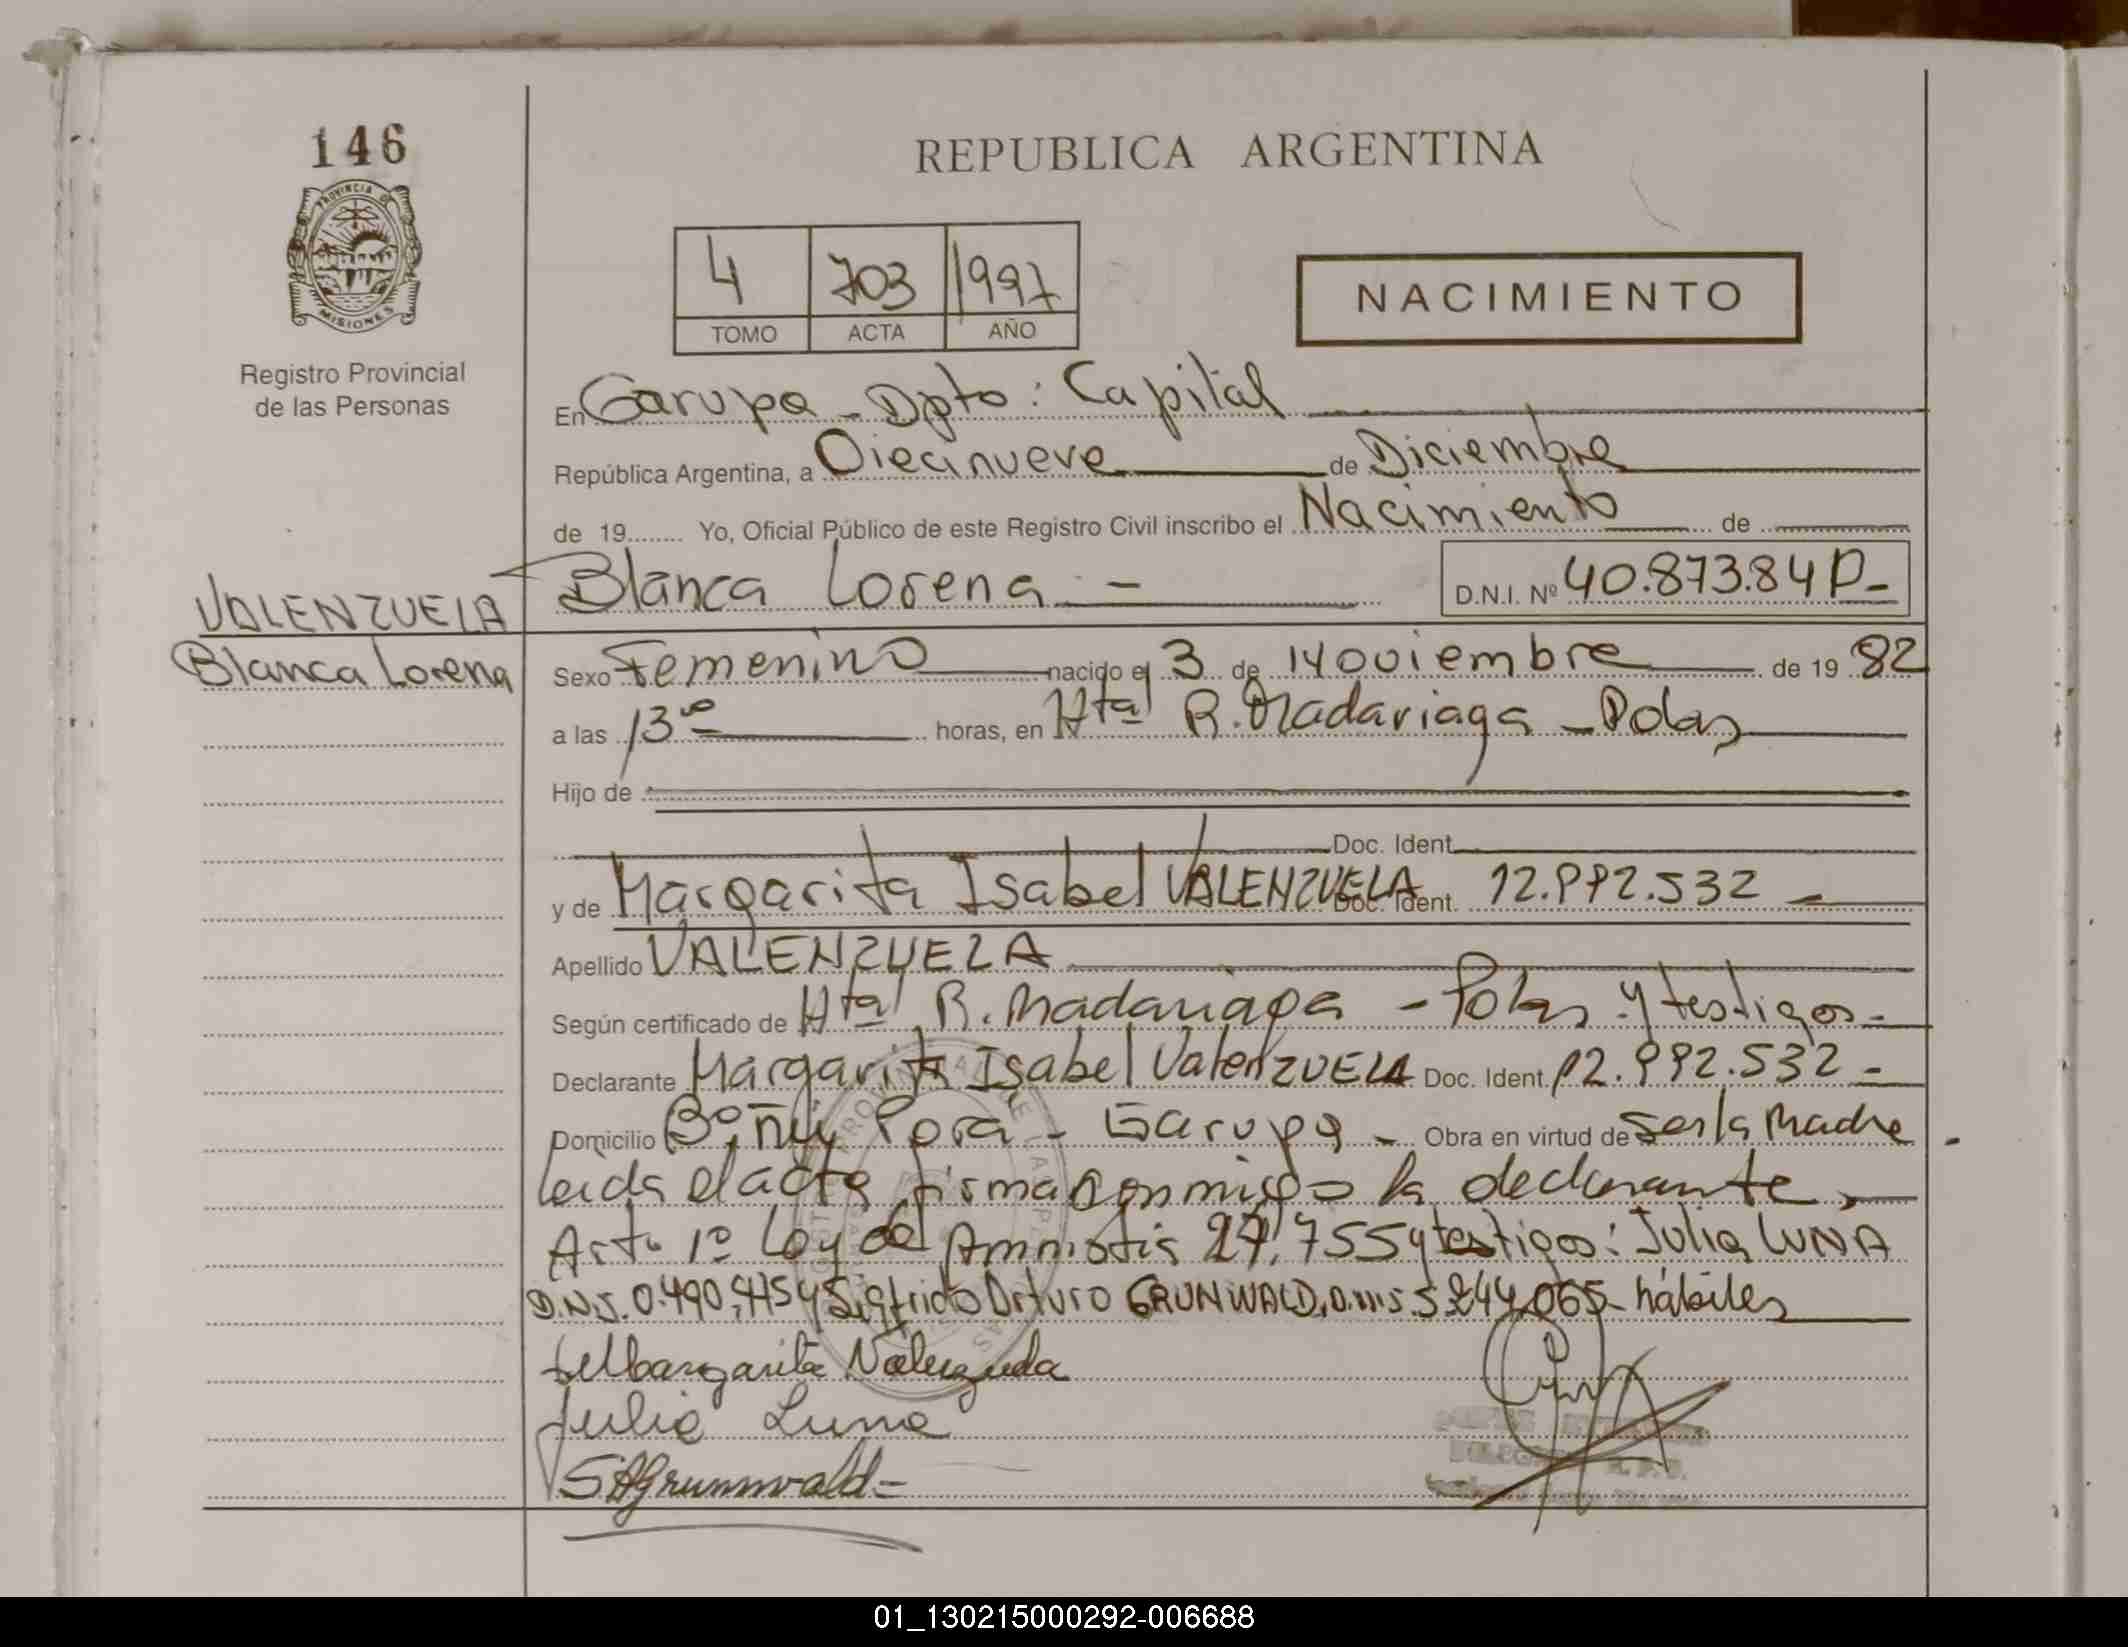 146
REPUBLICA ARGENTINA
PROVINCIA DE
MISIONES
Registro Provincial
de las Personas
4 703 1997
TOMO ACTA AÑO
NACIMIENTO
En Garupa - Dpto: Capital
República Argentina, a Diecinueve de Diciembre
de 19 Yo, Oficial Público de este Registro Civil inscribo el Nacimiento de
VALENZUELA
Blanca Lorena
Blanca Lorena - D.N.I. Nº
Sexo Femenino nacido el 3 de Noviembre de 19 82
a las 13 horas, en Htal R. Madariaga - Pdas
Hijo de
Doc. Ident.
y de Margarita Isabel VALENZUELA Doc. Ident. 12.992.532 -
Apellido VALENZUELA
Según certificado de Htal R. Madariaga - Pdas y testigos -
Declarante Margarita Isabel ValenZUELA Doc. Ident. 12.992.532 -
Domicilio Bº Ñu Porá - Garupa - Obra en virtud de ser la Madre
leida el acta, firma conmigo la declarante,
Art. 1º Ley de Amnistia y testigos: Julia LUNA
y Sigfrido Arturo GRUNWALD, hábiles
Margarita Valenzuela
Julia Luna
SAGrunwald -
01_130215000292-006688